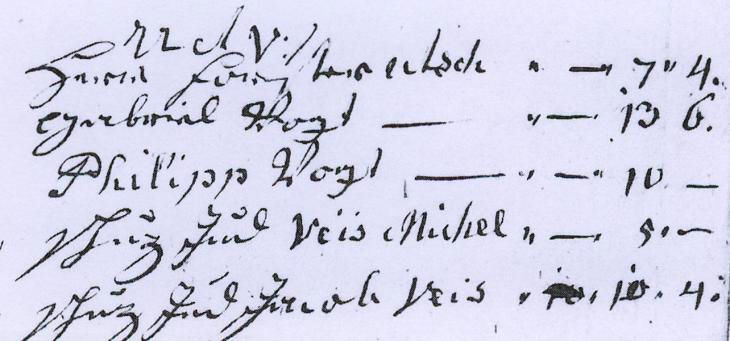 Herrn " — 7 " 4.
Gabriel Vogt — " — 13 6.
Philipp Vogt — " — " 10 —
Schuz Jud Veis Michel " — " 5 " —
Schuz Jud Jacob Veis " 10 " 4 "